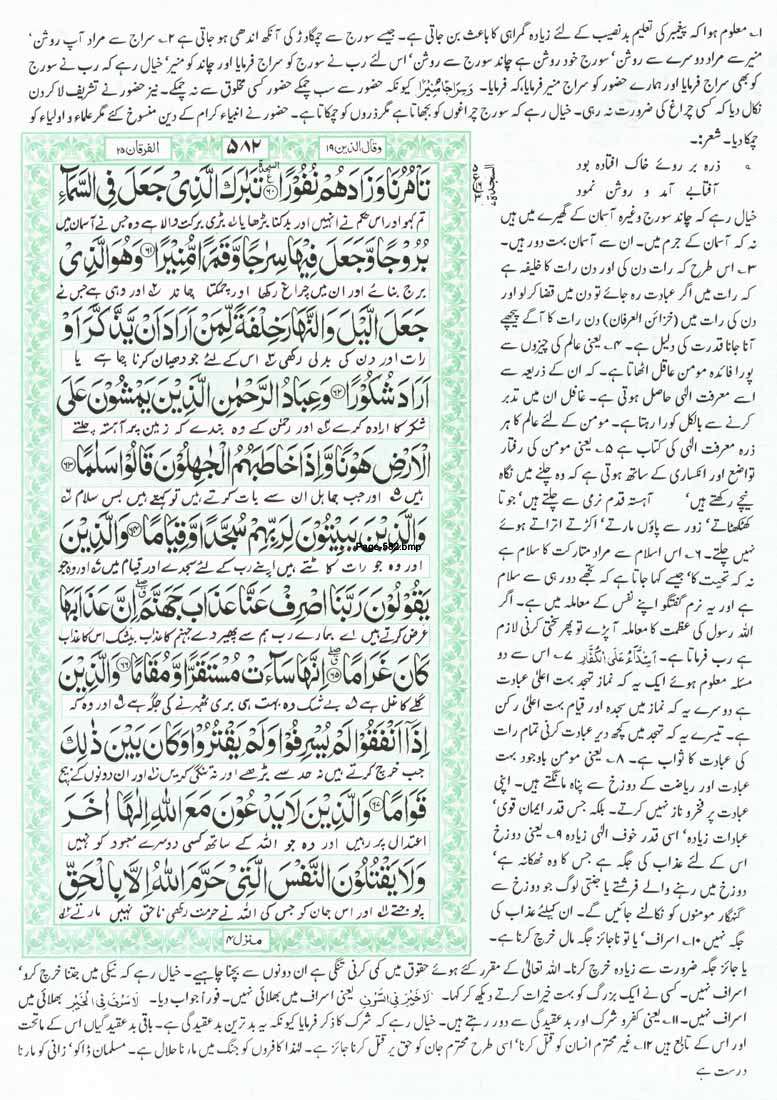 ۱۔ معلوم ہوا کہ پیغمبر کی تعلیم بدنصیب کے لئے زیادہ گمراہی کا باعث بن جاتی ہے۔ جیسے سورج سے چمگادڑ کی آنکھ اندھی ہو جاتی ہے ۲۔ سراج سے مراد آپ روشن'
منیر سے مراد دوسرے سے روشن' سورج خود روشن ہے چاند سورج سے روشن' اس لئے رب نے سورج کو سراج فرمایا اور چاند کو منیر' خیال رہے کہ رب نے سورج
کو بھی سراج فرمایا اور ہمارے حضور کو سراج منیر فرمایا، کہ فرمایا۔ وَسِرَاجًا مُّنِیْرًا کیونکہ حضور سے سب چمکے حضور کسی مخلوق سے نہ چمکے۔ نیز حضور نے تشریف لا کر دن
نکال دیا کہ کسی چراغ کی ضرورت نہ رہی۔ خیال رہے کہ سورج چراغوں کو بجھاتا ہے مگر ذروں کو چمکاتا ہے۔ حضور نے انبیاء کرام کے دین منسوخ کئے مگر علماء و اولیاء کو
چمکا دیا۔ شعر:۔
ذرہ بر روئے خاک افتادہ بود
آفتابے آمد و روشن نمود
خیال رہے کہ چاند سورج وغیرہ آسمان کے گھیرے میں ہیں
نہ کہ آسمان کے جرم میں۔ ان سے آسمان بہت دور ہیں۔
۳۔ اس طرح کہ رات دن کی اور دن رات کا خلیفہ ہے
کہ رات میں اگر عبادت رہ جائے تو دن میں قضا کر لو اور
دن کی رات میں (خزائن العرفان) دن رات کا آگے پیچھے
آنا جانا قدرت کی دلیل ہے۔ ۴۔ یعنی عالم کی چیزوں سے
پورا فائدہ مومن عاقل اٹھاتا ہے۔ کہ ان کے ذریعہ سے
اسے معرفت الٰہی حاصل ہوتی ہے۔ غافل ان میں تدبر
کرنے سے بالکل کورا رہتا ہے۔ مومن کے لئے عالم کا ہر
ذرہ معرفت الٰہی کی کتاب ہے ۵۔ یعنی مومن کی رفتار
تواضع اور انکساری کے ساتھ ہوتی ہے کہ وہ چلنے میں نگاہ
نیچے رکھتے ہیں' آہستہ قدم نرمی سے چلتے ہیں' جوتا
کھٹکھٹاتے' زور سے پاؤں مارتے' اکڑتے اتراتے ہوئے
نہیں چلتے۔ ۶۔ اس اسلام سے مراد متارکت کا سلام ہے
نہ کہ تحیت کا' جیسے کہا جاتا ہے کہ تجھے دور ہی سے سلام
ہے اور یہ نرم گفتگو اپنے نفس کے معاملہ میں ہے۔ اگر
اللہ رسول کی عظمت کا معاملہ آ پڑے تو پھر سختی کرنی لازم
ہے رب فرماتا ہے۔ اَشِدَّآءُ عَلَی الْکُفَّارِ ۷۔ اس سے دو
مسئلہ معلوم ہوئے ایک یہ کہ نماز تہجد بہت اعلیٰ عبادت
ہے دوسرے یہ کہ نماز میں سجدہ اور قیام بہت اعلیٰ رکن
ہے۔ تیسرے یہ کہ تہجد میں کچھ دیر عبادت کرنی تمام رات
کی عبادت کا ثواب ہے۔ ۸۔ یعنی مومن باوجود بہت
عبادت اور ریاضت کے دوزخ سے پناہ مانگتے ہیں۔ اپنی
عبادت پر فخر و ناز نہیں کرتے۔ بلکہ جس قدر ایمان قوی'
عبادات زیادہ' اسی قدر خوف الٰہی زیادہ ۹۔ یعنی دوزخ
اس کے لئے عذاب کی جگہ ہے جس کا وہ ٹھکانہ ہے'
دوزخ میں رہنے والے فرشتے یا جنتی لوگ جو دوزخ سے
گنہگار مومنوں کو نکالنے جائیں گے۔ ان کیلئے عذاب کی
جگہ نہیں ۱۰۔ اسراف' یا تو ناجائز جگہ مال خرچ کرنا ہے۔
السجدة
وقال الذین ۱۹
۵۸۲
الفرقان ۲۵
تَاْمُرُنَا وَزَادَهُمْ نُفُوْرًا ﴿۶۰﴾ تَبٰرَكَ الَّذِیْ جَعَلَ فِی السَّمَآءِ
تم کہو اور اس حکم نے انہیں اور بدکنا بڑھایا ۱ بڑی برکت والا ہے وہ جس نے آسمان میں
بُرُوْجًا وَّجَعَلَ فِیْهَا سِرٰجًا وَّقَمَرًا مُّنِیْرًا ﴿۶۱﴾ وَهُوَ الَّذِیْ
برج بنائے اور ان میں چراغ رکھا اور چمکتا چاند ۲ اور وہی ہے جس نے
جَعَلَ الَّیْلَ وَالنَّهَارَ خِلْفَةً لِّمَنْ اَرَادَ اَنْ یَّذَّكَّرَ اَوْ
رات اور دن کی بدلی رکھی ۳ اس کے لئے جو دھیان کرنا چاہے یا
اَرَادَ شُكُوْرًا ﴿۶۲﴾ وَعِبَادُ الرَّحْمٰنِ الَّذِیْنَ یَمْشُوْنَ عَلَی
شکر کا ارادہ کرے ۴ اور رحمٰن کے وہ بندے کہ زمین پر آہستہ چلتے
الْاَرْضِ هَوْنًا وَّاِذَا خَاطَبَهُمُ الْجٰهِلُوْنَ قَالُوْا سَلٰمًا ﴿۶۳﴾
ہیں ۵ اور جب جاہل ان سے بات کرتے ہیں تو کہتے ہیں بس سلام ۶
وَالَّذِیْنَ یَبِیْتُوْنَ لِرَبِّهِمْ سُجَّدًا وَّقِیَامًا ﴿۶۴﴾ وَالَّذِیْنَ
Page-582.bmp
اور وہ جو رات کاٹتے ہیں اپنے رب کے لئے سجدے اور قیام میں ۷ اور وہ جو
یَقُوْلُوْنَ رَبَّنَا اصْرِفْ عَنَّا عَذَابَ جَهَنَّمَ ۖ اِنَّ عَذَابَهَا
عرض کرتے ہیں اے ہمارے رب ہم سے پھیر دے جہنم کا عذاب بیشک اس کا عذاب
كَانَ غَرَامًا ﴿۶۵﴾ اِنَّهَا سَآءَتْ مُسْتَقَرًّا وَّمُقَامًا ﴿۶۶﴾ وَالَّذِیْنَ
گلے کا غل ہے ۸ بے شک وہ بہت ہی بری ٹھہرنے کی جگہ ہے ۹ اور وہ کہ
اِذَآ اَنْفَقُوْا لَمْ یُسْرِفُوْا وَلَمْ یَقْتُرُوْا وَكَانَ بَیْنَ ذٰلِكَ
جب خرچ کرتے ہیں نہ حد سے بڑھیں اور نہ تنگی کریں ۱۰ اور ان دونوں کے بیچ
قَوَامًا ﴿۶۷﴾ وَالَّذِیْنَ لَا یَدْعُوْنَ مَعَ اللّٰهِ اِلٰهًا اٰخَرَ
اعتدال پر رہیں اور وہ جو اللہ کے ساتھ کسی دوسرے معبود کو نہیں
وَلَا یَقْتُلُوْنَ النَّفْسَ الَّتِیْ حَرَّمَ اللّٰهُ اِلَّا بِالْحَقِّ
پوجتے ۱۱ اور اس جان کو جس کی اللہ نے حرمت رکھی ناحق نہیں مارتے ۱۲
منزل ۴
یا جائز جگہ ضرورت سے زیادہ خرچ کرنا۔ اللہ تعالیٰ کے مقرر کئے ہوئے حقوق میں کمی کرنی تنگی ہے ان دونوں سے بچنا چاہیے۔ خیال رہے کہ نیکی میں جتنا خرچ کرو'
اسراف نہیں۔ کسی نے ایک بزرگ کو بہت خیرات کرتے دیکھ کر کہا۔ لَاخَیْرَ فِی السَّرَفِ یعنی اسراف میں بھلائی نہیں۔ فوراً جواب دیا۔ لَا سَرَفَ فِی الْخَیْرِ بھلائی میں
اسراف نہیں۔ ۱۱۔ یعنی کفر و شرک اور بدعقیدگی سے دور رہتے ہیں۔ خیال رہے کہ شرک کا ذکر فرمایا کیونکہ یہ بدترین بدعقیدگی ہے۔ باقی بدعقیدگیاں اس کے ماتحت
اور اس کے تابع ہیں ۱۲۔ غیر محترم انسان کو قتل کرنا' اسی طرح محترم جان کو حق پر قتل کرنا جائز ہے۔ لہٰذا کافروں کو جنگ میں مارنا حلال ہے۔ مسلمان ڈاکو' زانی کو مارنا
درست ہے